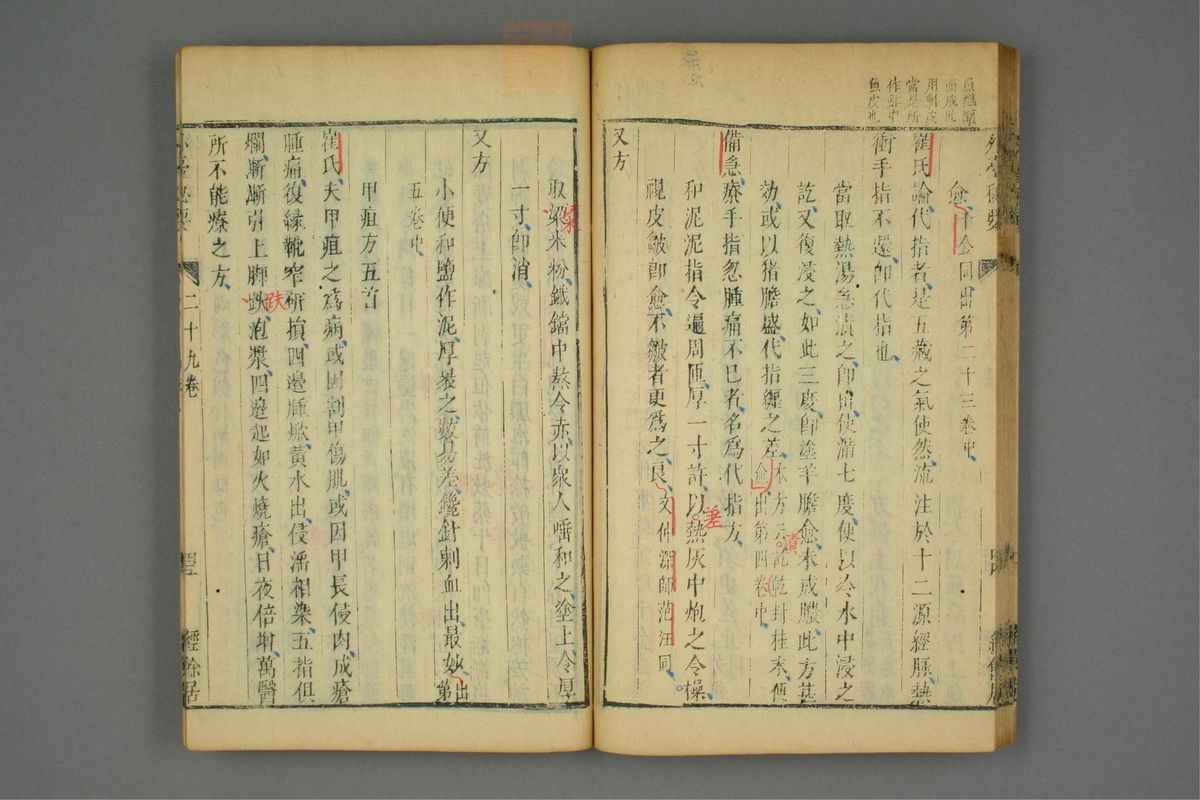 愈千金同出第二十三卷中
崔氏論代指者是五藏之氣使然流注於十二源經脈熱
衝手指不還即代指也
當取熱湯急漬之即出使滿七度便以冷水中浸之
訖又復浸之如此三度即塗羊膽愈未成膿此方甚
効或以猪膽盛代指纏之差
愈出第四卷中
備急療手指忽腫痛不已者名為代指方
和泥泥指令遍周匝厚一寸許以熱灰中炮之令燥
視皮皺即愈不皺者更為之良文仲深師范汪同
又方
取粱米粉鐵鐺中熬令赤以衆人唾和之塗上令厚
一寸即消
又方
小便和鹽作泥厚暴之數易差鑱針刺血出最妙出第
五卷中
甲疽方五首
崔氏夫甲疽之為病或因割甲傷肌或因甲長侵肉成瘡
腫痛復緣靴窄研損四邊腫焮黃水出侵溼相染五指俱
爛漸漸引上脚趺泡漿四邊起如火燒瘡日夜倍增萬醫
所不能療之方
二十九卷
經餘居